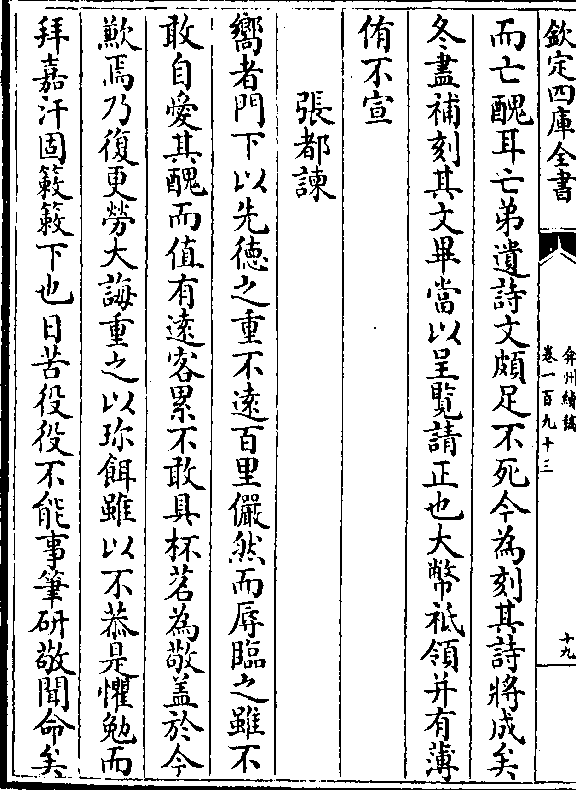 欽定四庫全書
弇州續稿
卷一百九十三
十九
而亡醜耳亡弟遺詩文頗足不死今為刻其詩將成矣
冬盡補刻其文畢當以呈覧請正也大幣祗領并有薄
侑不宣
張都諫
嚮者門下以先德之重不遠百里儼然而辱臨之雖不
敢自愛其醜而值有遠客累不敢具杯茗為敬盖於今
歉焉乃復更勞大誨重之以珎餌雖以不恭是懼勉而
拜嘉汗固簌簌下也日苦役役不能事筆研敬聞命矣